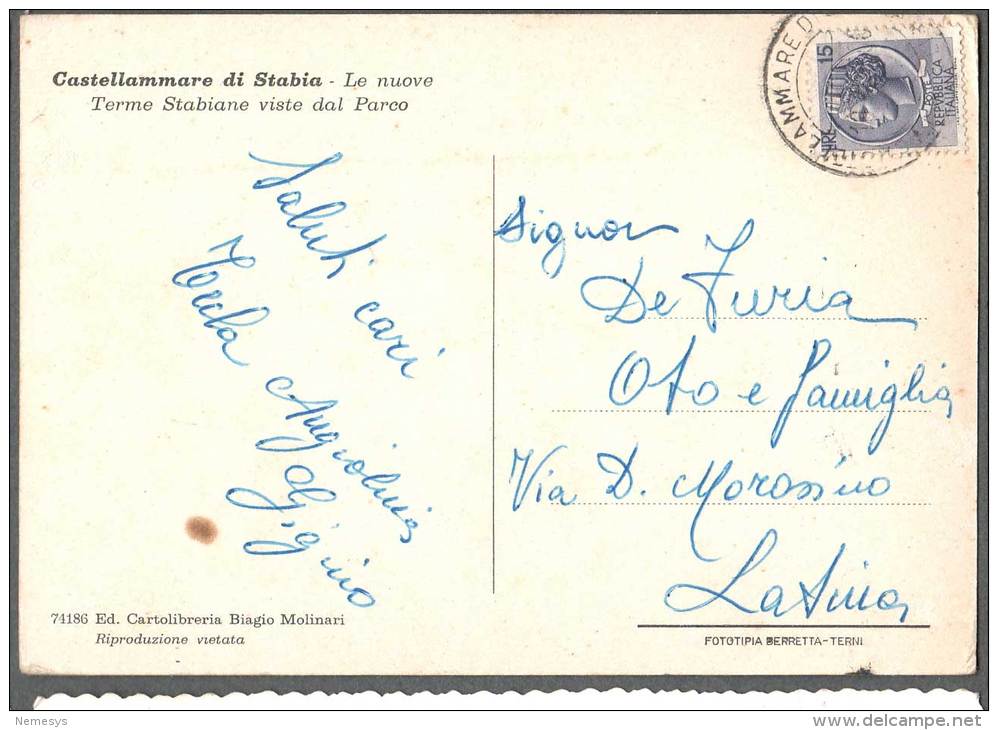 Castellammare di Stabia - Le nuove
Terme Stabiane viste dal Parco
Saluti cari
Tecla Angiolina
Gigino
74186 Ed. Cartolibreria Biagio Molinari
Riproduzione vietata
AMMARE D
LIRE 15
POSTE
REPVBBLICA
ITALIANA
Signor
De Furia
Oto e famiglia
Via D. Morosino
Latina
FOTOTIPIA BERRETTA-TERNI
Nemesys
delcampe.net